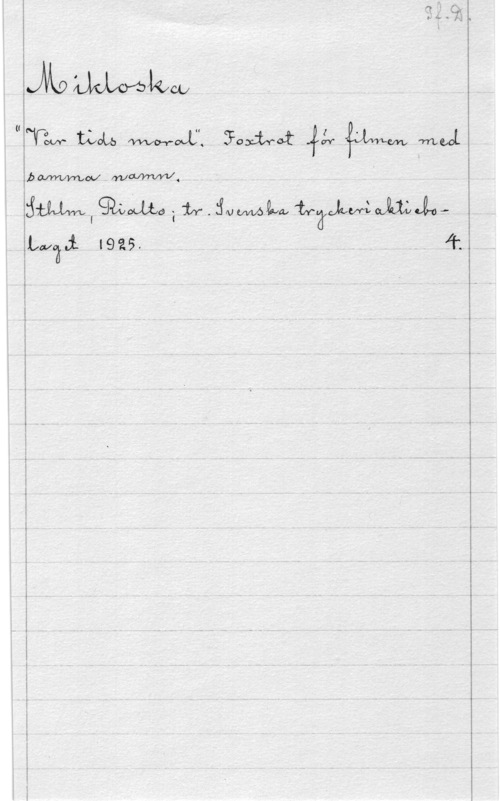 Mikloska
"Vår tids moral". Foxtrot för filmen med
samma namn.
Sthlm, Rialto; tr. Svenska tryckeriaktiebo-
laget 1925. 4.